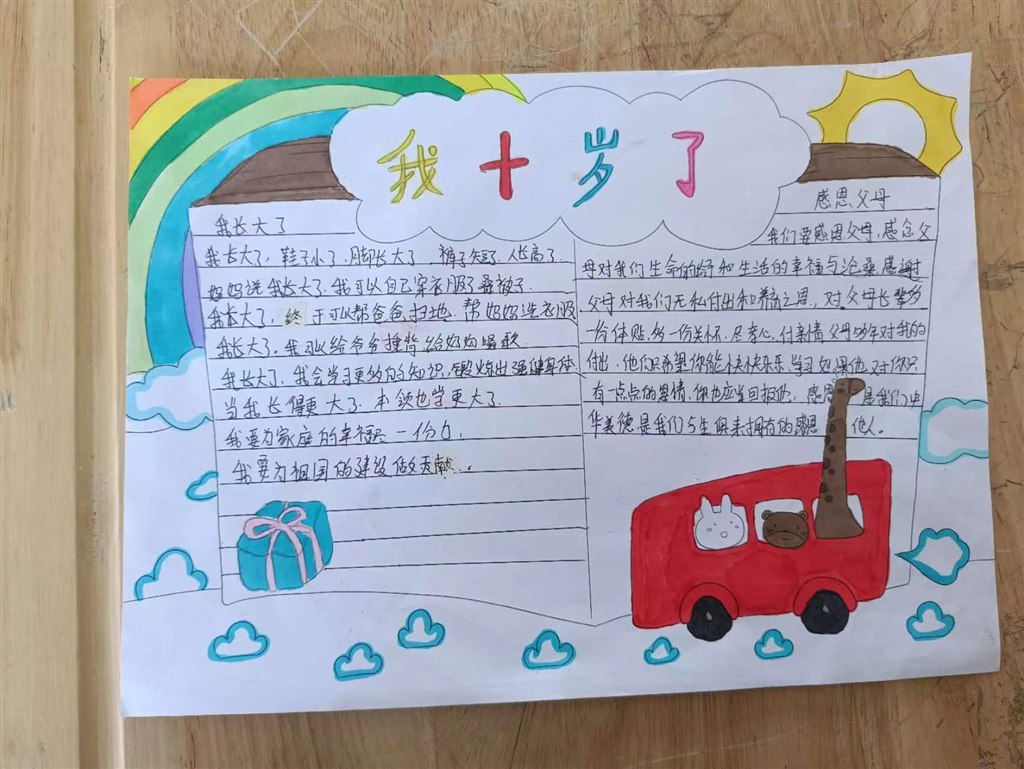 我十岁了
我长大了
我长大了，鞋子小了.脚长大了 裤子短了.人长高了.
妈妈说我长大了.我可以自己穿衣服了叠被子.
我长大了，终于可以帮爸爸扫地.帮妈妈洗衣服
我长大了，我可以给爷爷捶背给奶奶唱歌.
我长大了.我会学习更多的知识，锻炼出强健身体
当我长得更大了.本领也学更大.
我要为家庭的幸福 一份力.
我要为祖国的建设做贡献.
感恩父母
我们要感恩父母，感念父
母对我们生命的给予和生活的幸福与沧桑.感谢
父母对我们无私付出和养育之恩，对父母长辈多
一份体贴.多一份关怀.尽孝心.付亲情 父母 年对我的
付出，他们只希望你能快快乐乐学习如果他对你只
有一点点的恩情.你也应当回报他，感恩 是我们中
华美德是我们与生俱来拥有的感恩 他人.